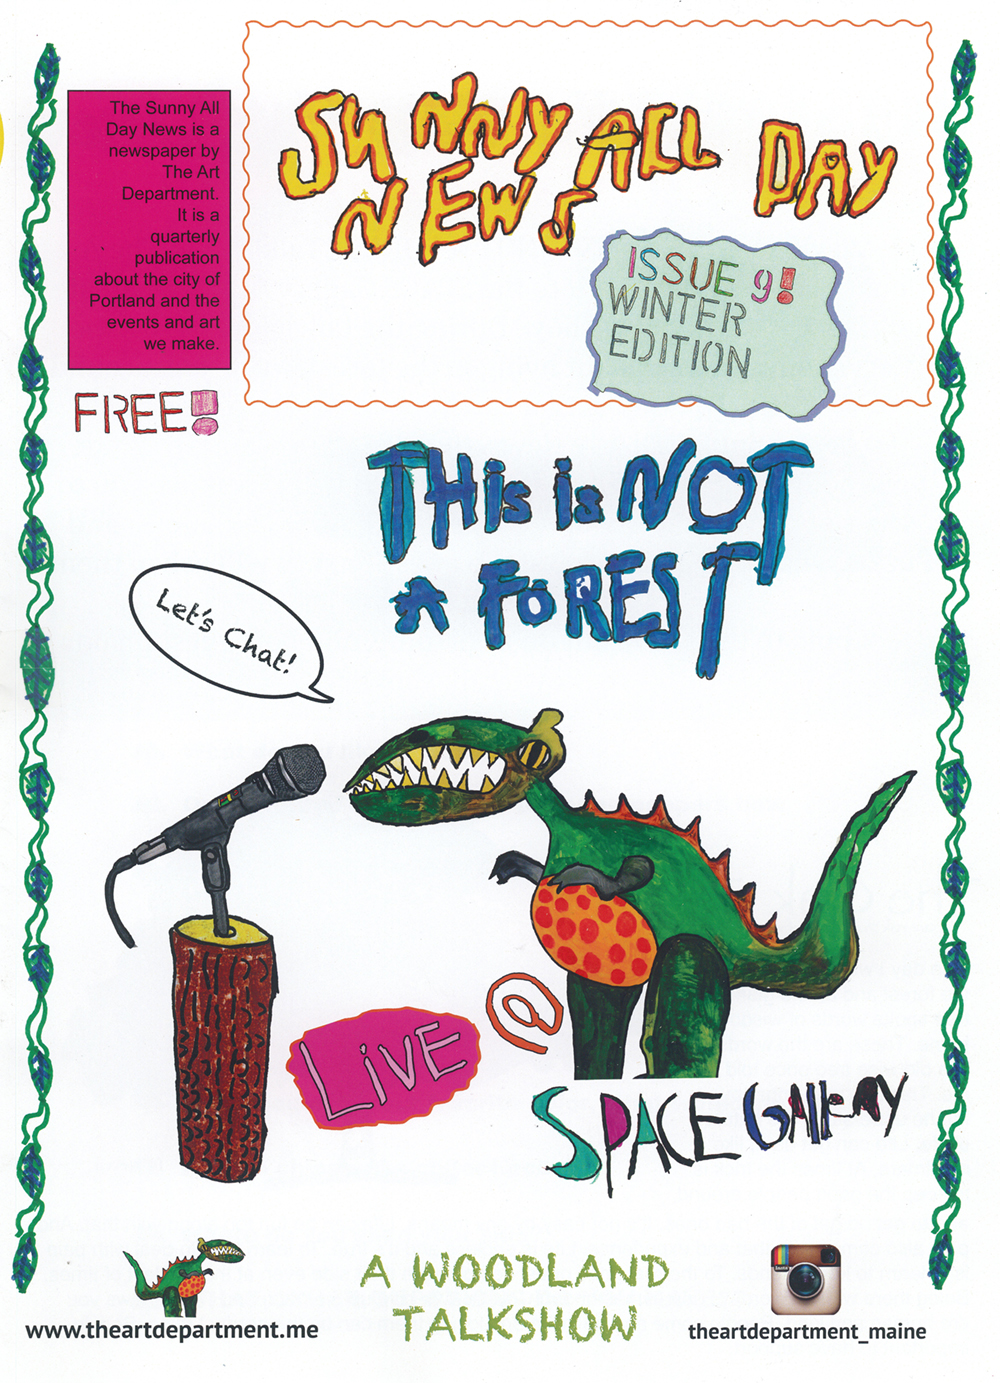 The Sunny All
Day News is a
newspaper by
The Art
Department.
It is a
quarterly
publication
about the city of
Portland and the
events and art
we make.
FREE!
SUNNY ALL DAY
NEWS
ISSUE 9!
WINTER
EDITION
THis is NOT
A FOREST
Let's Chat!
LiVE @
SPACE GAlleRAY
A WOODLAND
TALKSHOW
www.theartdepartment.me
theartdepartment_maine